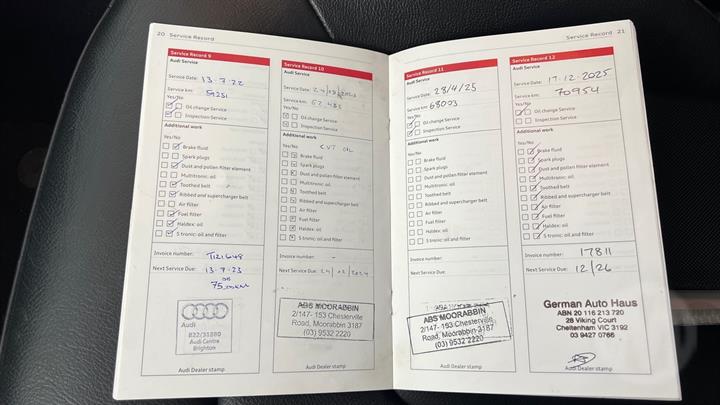 20 Service Record
Service Record 9
Audi Service
Service Date: 13.7.22
Service km:
Yes/No
Oil change Service
Inspection Service
Additional work
Yes/No
Brake fluid
Spark plugs
Dust and pollen filter element
Multitronic: oil
Toothed belt
Ribbed and supercharger belt
Air filter
Fuel filter
Haldex: oil
S tronic: oil and filter
Invoice number:
Next Service Due: 13.7.23
OR
Audi
822/31880
Audi Centre
Brighton
Audi Dealer stamp
Service Record 10
Audi Service
Service Date:
Service km:
Yes/No
Oil change Service
Inspection Service
Additional work
Yes/No CVT OIL
Brake fluid
Spark plugs
Dust and pollen filter element
Multitronic: oil
Toothed belt
Ribbed and supercharger belt
Air filter
Fuel filter
Haldex: oil
S tronic: oil and filter
Invoice number: -
Next Service Due:
ABS MOORABBIN
2/147- 153 Chesterville
Road, Moorabbin 3187
(03) 9532 2220
Audi Dealer stamp
Service Record 21
Service Record 11
Audi Service
Service Date: 28/4/25
Service km: 68093
Yes/No
Oil change Service
Inspection Service
Additional work
Yes/No
Brake fluid
Spark plugs
Dust and pollen filter element
Multitronic: oil
Toothed belt
Ribbed and supercharger belt
Air filter
Fuel filter
Haldex: oil
S tronic: oil and filter
Invoice number:
Next Service Due:
ABS MOORABBIN
2/147- 153 Chesterville
Road, Moorabbin 3187
(03) 9532 2220
Audi Dealer stamp
Service Record 12
Audi Service
Service Date: 17.12.2025
Service km: 70954
Yes/No
Oil change Service
Inspection Service
Additional work
Yes/No
Brake fluid
Spark plugs
Dust and pollen filter element
Multitronic: oil
Toothed belt
Ribbed and supercharger belt
Air filter
Fuel filter
Haldex: oil
S tronic: oil and filter
Invoice number: 17811
Next Service Due: 12/26
German Auto Haus
ABN 20 116 213 720
28 Viking Court
Cheltenham VIC 3192
03 9427 0766
Audi Dealer stamp